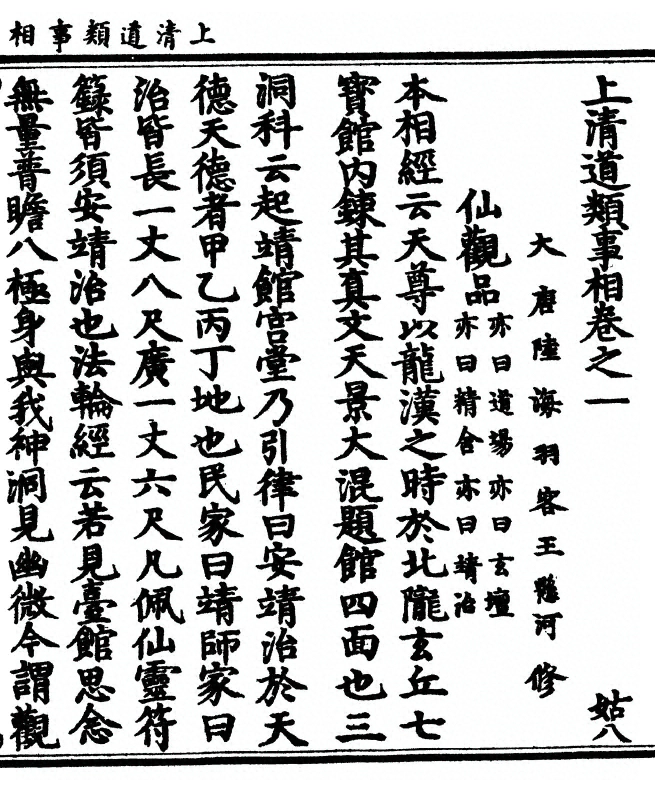 上清道類事相
上清道類事相卷之一
姑八
大唐陸海羽客王懸河修
仙觀品
亦曰道場亦曰玄壇
亦曰精舍亦曰靖治
本相經云天尊以龍漢之時於北隴玄丘七
寶館內鍊其真文天景大混題館四面也三
洞科云起靖館宮堂乃引律曰安靖治於天
德天德者甲乙丙丁地也民家曰靖師家曰
治皆長一丈八尺廣一丈六尺凡佩仙靈符
籙皆須安靖治也法輪經云若見臺館思念
無量普瞻八極身與我神洞見幽微今謂觀